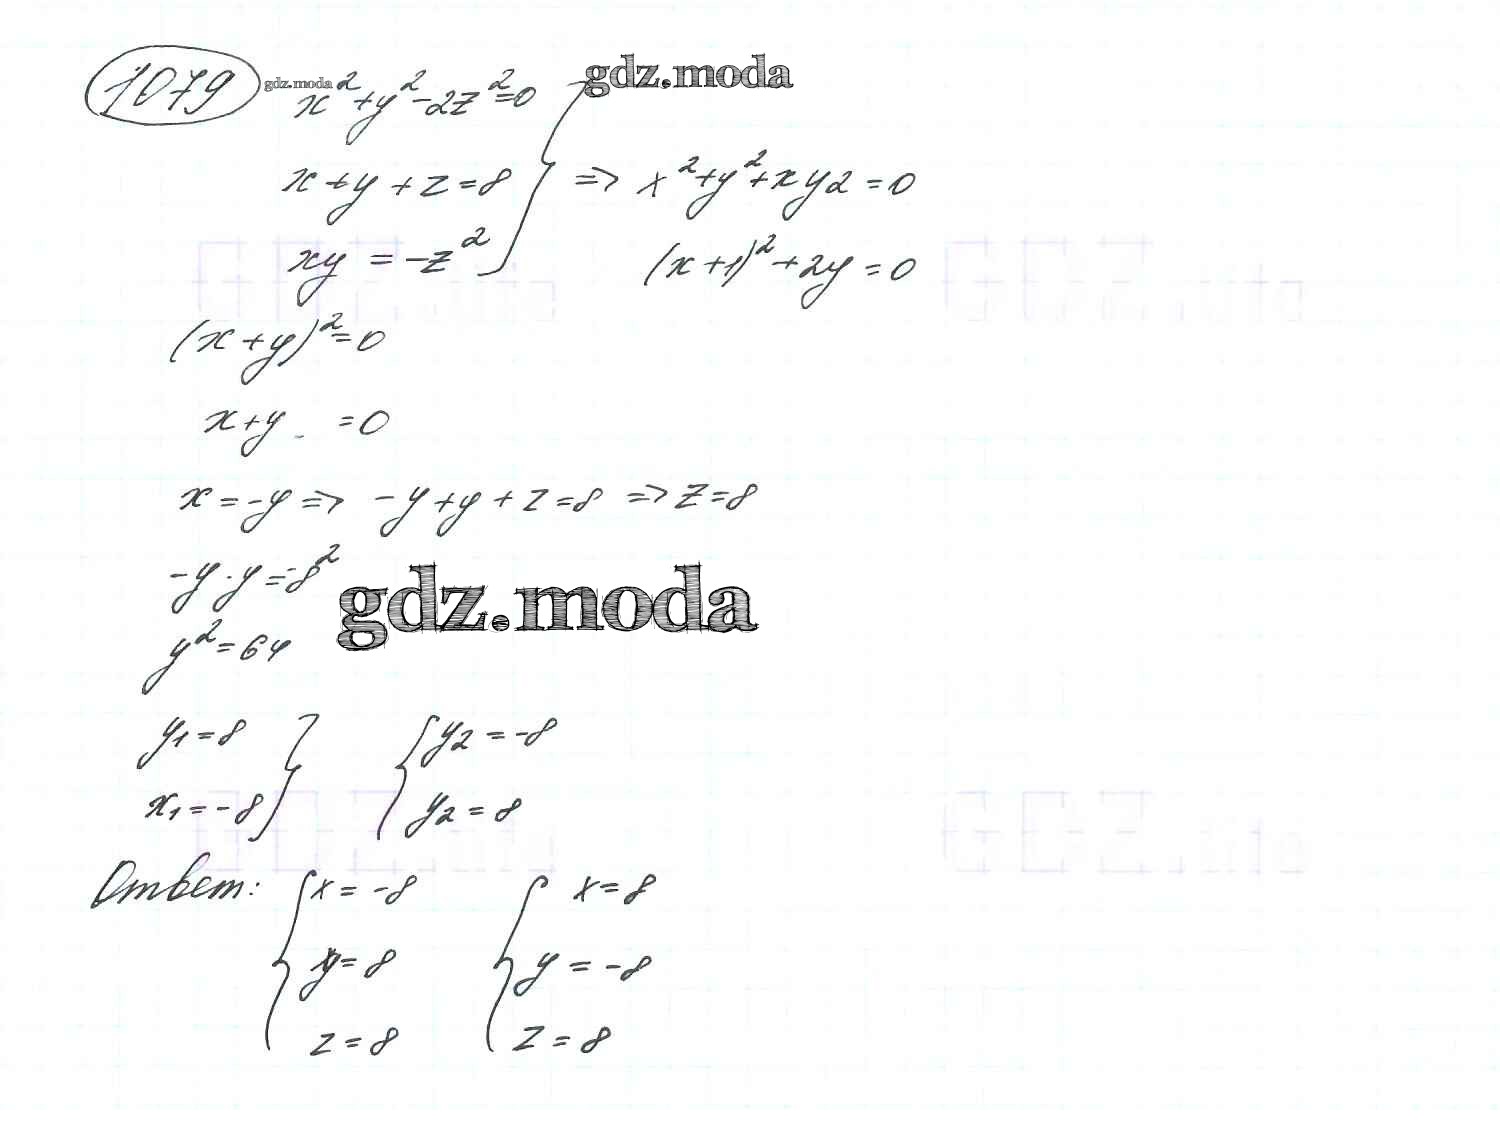 1079 gdz.moda x²+y²-2z²=0 gdz.moda
x+y+z=8 => x²+y²+xy2=0
xy=-z² (x+1)²+2y=0
(x+y)²=0
x+y =0
x=-y => -y+y+z=8 => z=8
-y·y=-8²
gdz.moda
y²=64
y1=8 y2=-8
x1=-8 y2=8
Ответ: x=-8 x=8
y=8 y=-8
z=8 z=8